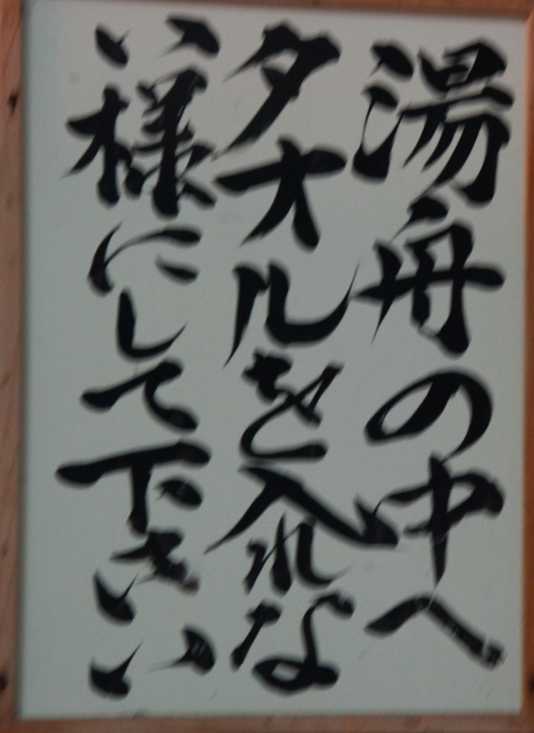 湯舟の中へ
タオルを入れな
い様にして下さい